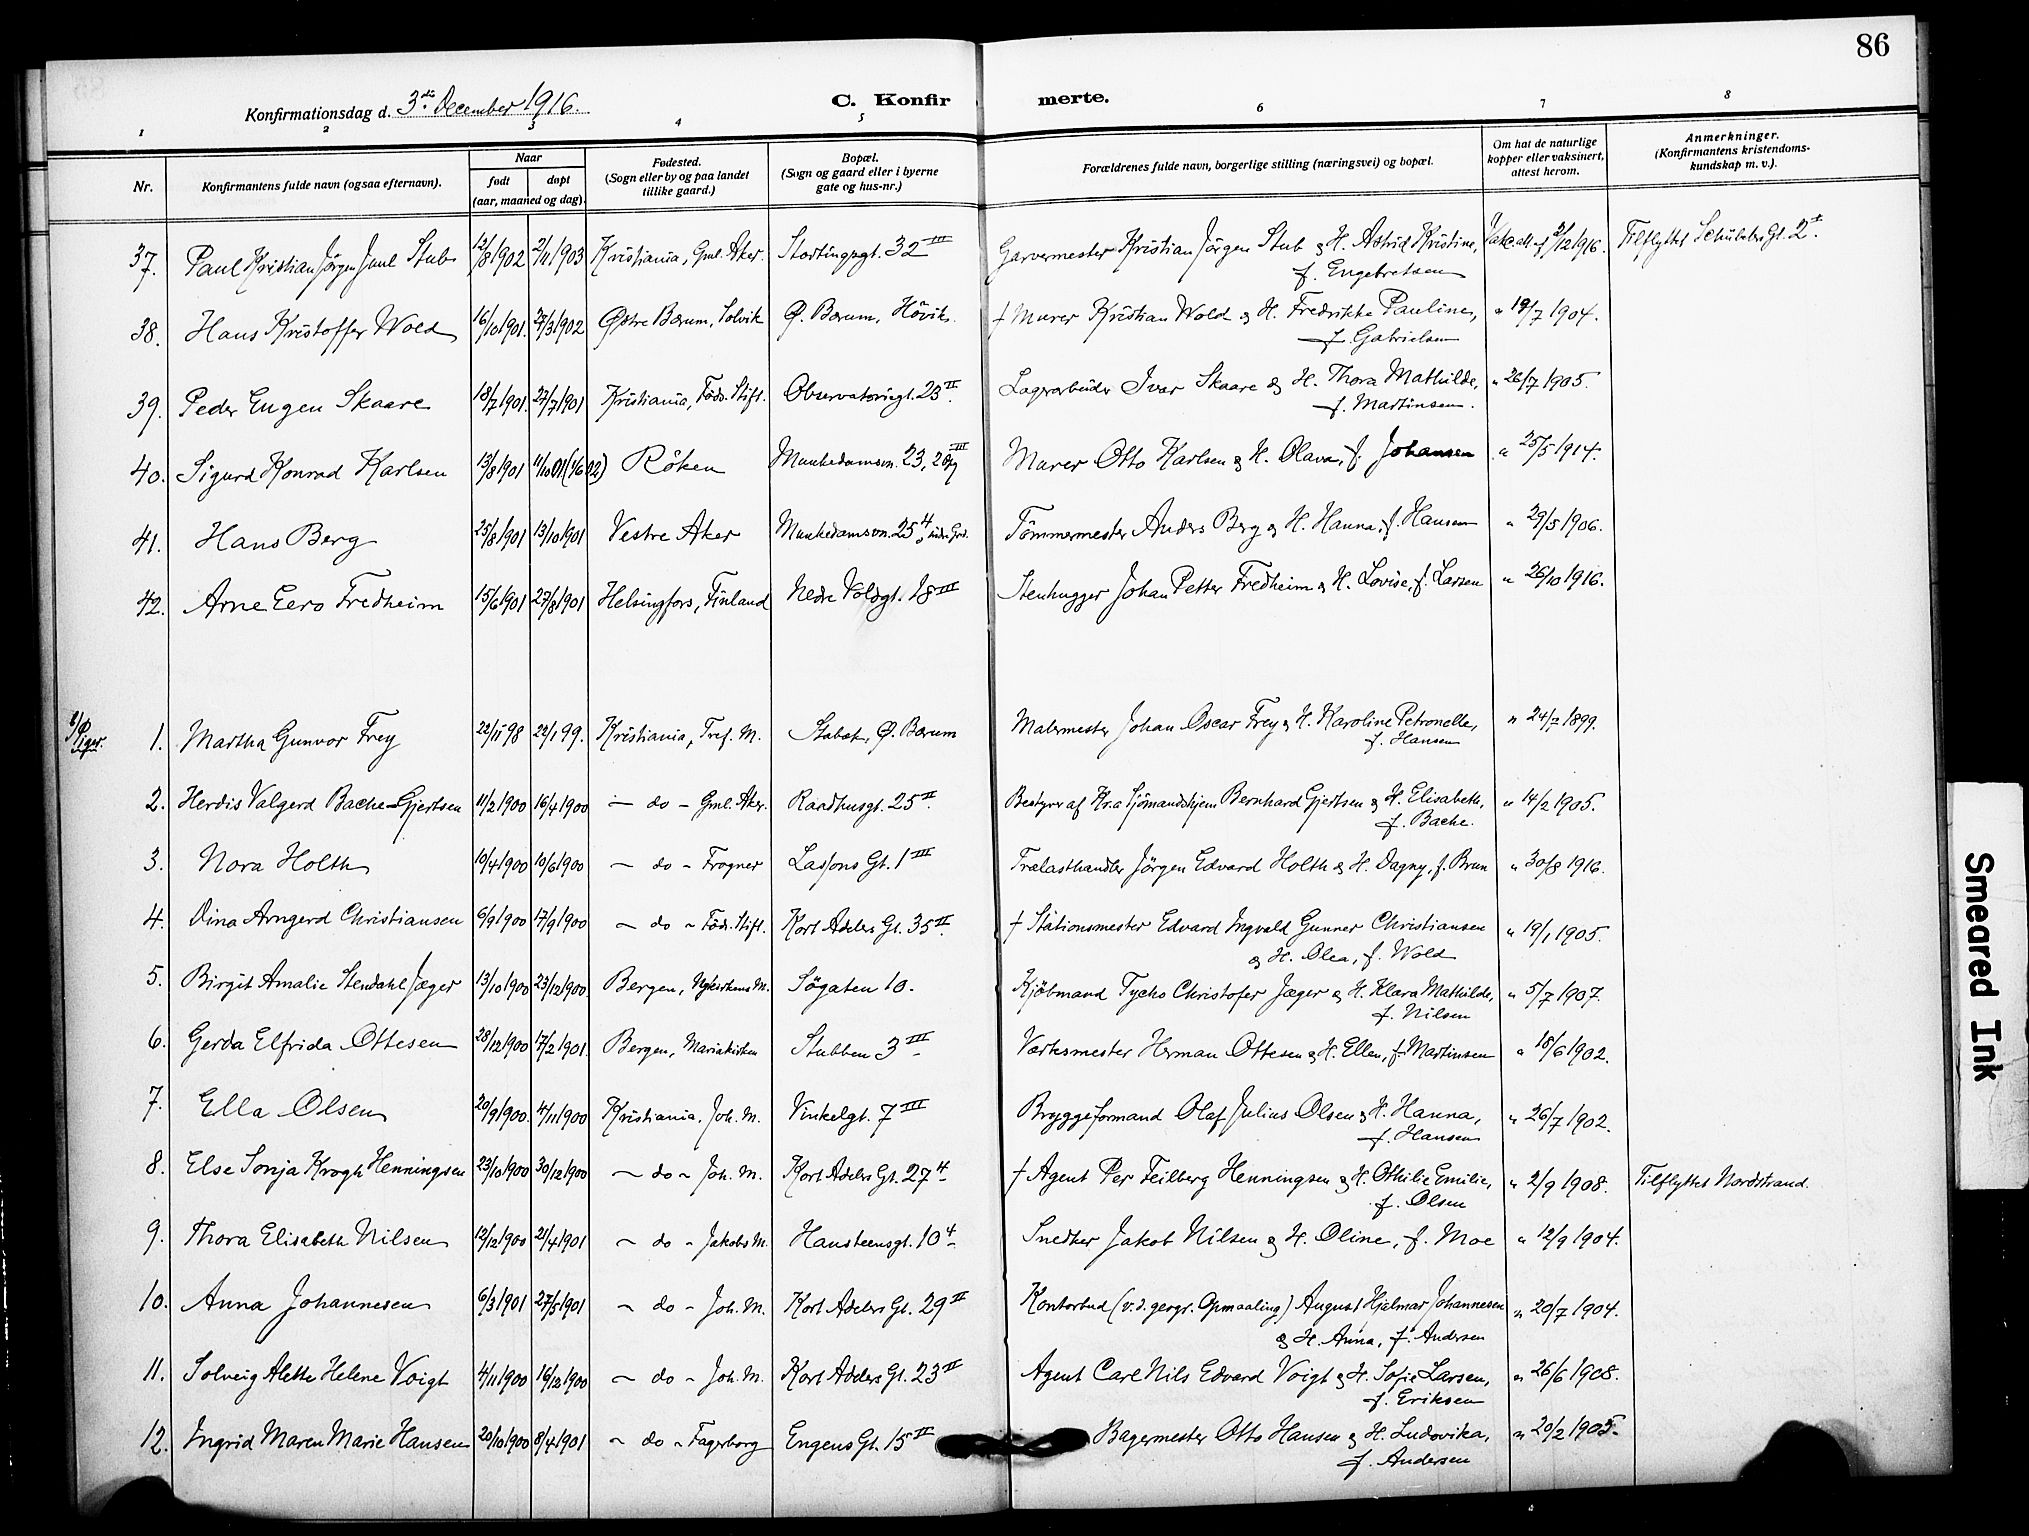 86
Konfirmationsdag d. 3die December 1916.
C. Konfir merte.
1 2 3 4 5 6 7 8
Nr. Konfirmantens fulde navn (ogsaa efternavn). Naar født døpt (aar, maaned og dag). Fødested. (Sogn eller by og paa landet tillike gaard.) Bopæl. (Sogn og gaard eller i byerne gate og hus-nr.) Forældrenes fulde navn, borgerlige stilling (næringsvei) og bopæl. Om hat de naturlige kopper eller vaksinert, attest herom. Anmerkninger. (Konfirmantens kristendoms-kundskap m. v.).
37. Paul Kristian Jörgen Juul Stub 12/8 1902 2/11 1903 Kristiania, Gml. Aker. Stortingsgt. 32 III Garvermester Kristian Jörgen Stub & H. Astrid Kristine, Vakc.att. f. 2/12 1916. Tilflyttet Schübelers Gt. 2 I.
f. Engebretsen
38. Hans Kristoffer Wold 16/10 1901. 27/3 1902 Østre Bærum, Solvik Ø. Bærum, Hövik. † Murer Kristian Wold & H. Fredrikke Pauline, " 19/7 1904.
f. Gabrielsen
39. Peder Eugen Skaare 18/7 1901. 27/7 1901 Kristiania, Föds. Stift. Observatoriegt. 23 II. Lagerarbeider Ivar Skaare & H. Thora Mathilde, " 26/7 1905.
f. Martinsen.
40. Sigurd Konrad Karlsen 13/8 1901 11/10 01 (1/6 02) Röken Munkedamsvn. 23, III Murer Otto Karlsen & H. Olava, f. Johansen " 25/5 1914.
41. Hans Berg 25/8 1901 13/10 1901 Vestre Aker Munkedamsvn. 25 4, Tömmermester Anders Berg & H. Hanna, f. Hansen " 29/5 1906.
42. Arne Eero Fredheim 15/6 1901 27/8 1901 Helsingfors, Finland Nedre Voldgt. 18 III Stenhugger Johan Petter Fredheim & H. Lovise, f. Larsen " 26/10 1916.
Piger.
1. Martha Gunvor Frey 22/11 98 22/1 99. Kristiania, Tref. M. Stabæk, Ø. Bærum Malermester Johan Oscar Frey & H. Karoline Petronelle, " 24/7 1899.
f. Hansen
2. Herdis Valgerd Bache-Gjertsen 11/2 1900 16/4 1900 — do – Gml. Aker. Raadhusgt. 25 II. Bestyrer af Kr.a Sjömandshjem Bernhard Gjertsen & H. Elisabeth, " 14/2 1905.
f. Bache.
3. Nora Holth 10/4 1900 10/6 1900 – do – Frogner Lassons Gt. 1 III Trælasthandler Jörgen Edvard Holth & H. Dagny, f. Brun " 30/8 1916.
4. Dina Arngerd Christiansen 6/9 1900 17/9 1900 – do – Föds. Stift. Kort Adelers Gt. 35 II. † Stationsmester Edvard Ingvald Gunner Christiansen " 19/1 1905.
& H. Olea, f. Wold
5. Birgit Amalie Stendahl Jæger 13/10 1900 23/12 1900 Bergen, Nykirkens M. Sögaten 10. Kjöbmand Tycho Christofer Jæger & H. Klara Mathilde, " 5/7 1907.
f. Nilsen
6. Gerda Elfrida Ottesen 28/12 1900 17/2 1901. Bergen, Mariakirken Stubben 3 III. Værksmester Herman Ottesen & H. Ellen, f. Martinsen " 18/6 1902.
7. Ella Olsen 20/9 1900. 4/11 1900 Kristiania, Joh. M. Vinkelgt. 7 III Bryggeformand Olaf Julius Olsen & H. Hanna, " 26/7 1902.
f. Hansen
8. Else Sonja Krogh Henningsen 23/10 1900 30/12 1900 – do – Joh. M. Kort Adelers Gt. 27 4. † Agent Per Feilberg Henningsen & H. Othilie Emilie, " 2/9 1908. Tilflyttet Nordstrand.
f. Olsen
9. Thora Elisabeth Nilsen 12/12 1900 21/4 1901 – do – Jakobs M. Hansteensgt. 10 4. Snedker Jakob Nilsen & H. Oline, f. Moe " 12/9 1904.
10. Anna Johannesen 6/3 1901 27/5 1901 – do – Joh. M. Kort Adelers Gt. 29 II Kontorbud (v. d. geogr. Opmaaling) August Hjalmar Johannesen " 20/7 1904.
& H. Anna, f. Andersen
11. Solveig Alette Helene Voigt 4/11 1900 16/12 1900 – do – Joh. M. Kort Adelers Gt. 23 II Agent Carl Nils Edvard Voigt & H. Sofie Larsen, " 26/6 1908.
f. Eriksen
12. Ingrid Maren Marie Hansen 20/10 1900 8/4 1901 – do – Fagerborg Engens Gt. 15 II Bagermester Otto Hansen & H. Ludovika, " 20/2 1905.
f. Andersen
Smeared Ink